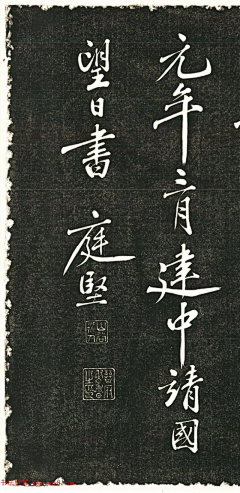 元年月建中靖國
望日書 庭堅